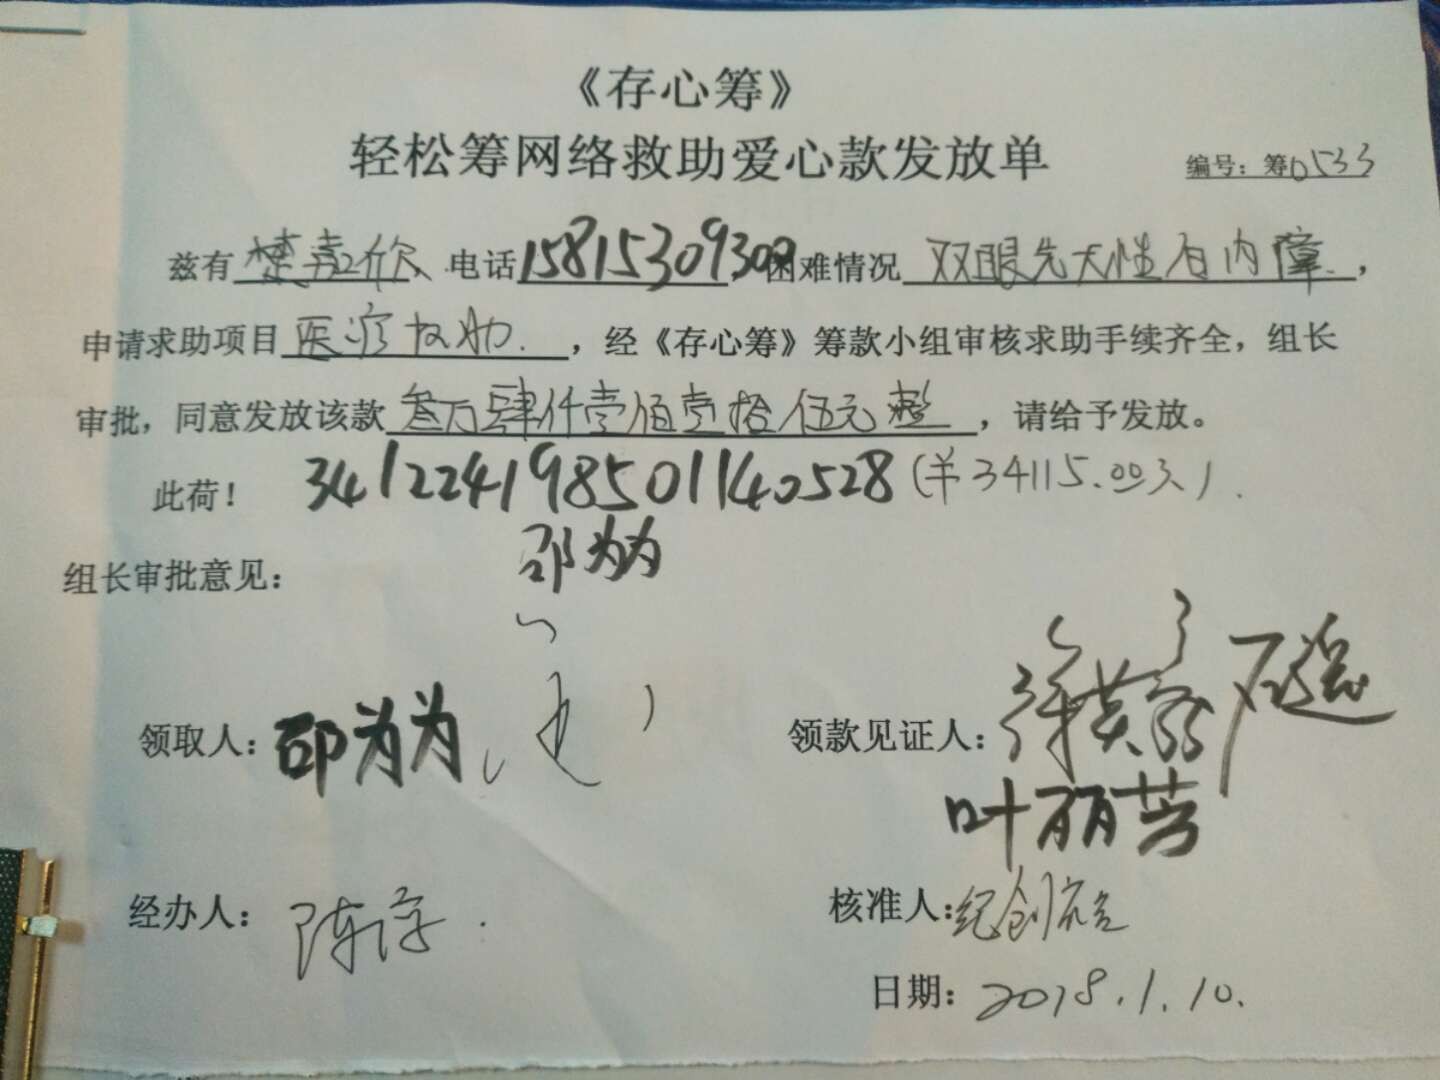 《存心筹》
轻松筹网络救助爱心款发放单
编号：筹0533
兹有楚嘉欣电话15815309300，困难情况双眼先天性白内障，
申请求助项目医疗救助.，经《存心筹》筹款小组审核求助手续齐全，组长
审批，同意发放该款叁万肆仟壹佰壹拾伍元整，请给予发放。
此荷！ 341224198501140528（¥34115.00元）.
邵为为
组长审批意见：
领取人：邵为为
领款见证人：
叶丽芸
经办人：陈
核准人：纪创
日期：2018.1.10.